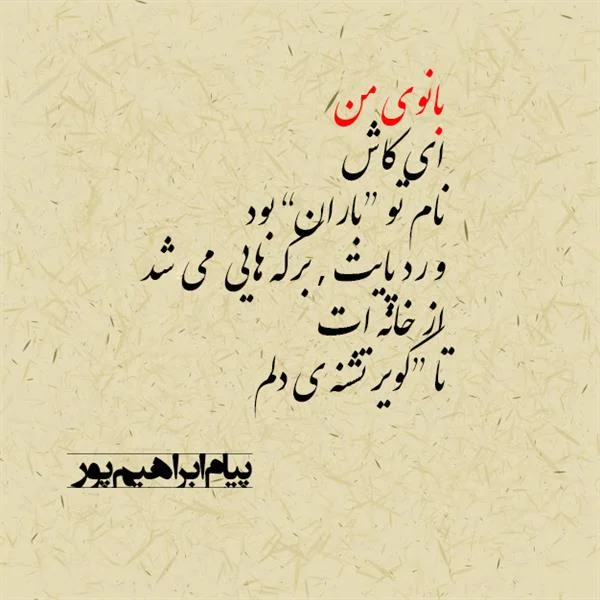 بانوی من
ای کاش
نام تو ”باران“ بود
و رد پایت , برکه هایی می شد
از خانه ات
تا ”کویر تشنه ی دلم
پیام ابراهیم پور